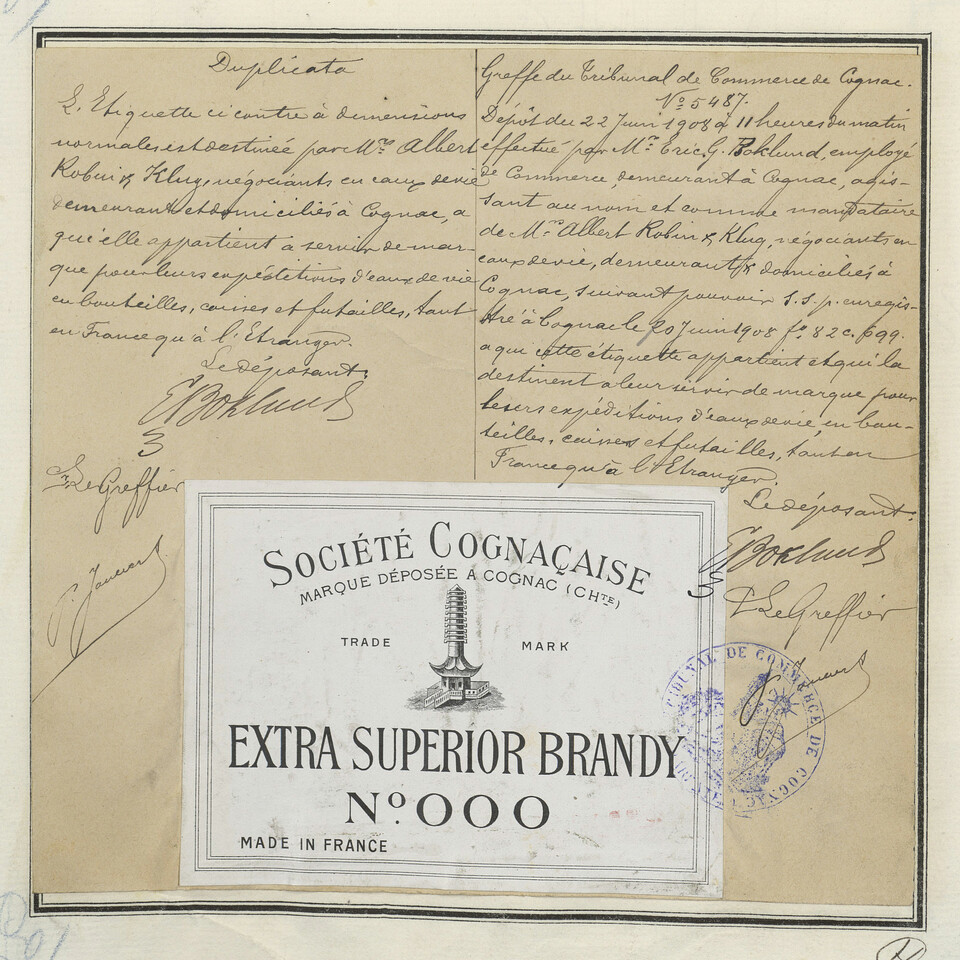 Duplicata
L'Etiquette ci contre à dimensions
normales est destinée par Mrs Albert
Robin & Klug, négociants en eaux de vie
demeurant et domiciliés à Cognac, a
qu'elle appartient a servir de mar-
que pour leurs expéditions d'eaux de vie
en bouteilles, caisses et futailles, tant
en France qu'à l'Etranger.
Le déposant.
EBoklund
Le Greffier
Greffe du Tribunal de Commerce de Cognac.
No 5487.
Dépôt du 22 Juin 1908 à 11 heures du matin
effectué par Mr. Eric. G. Boklund, employé
de Commerce, demeurant à Cognac, agis-
sant au nom et comme mandataire
de Mrs Albert Robin & Klug, négociants en
eaux de vie, demeurant & domiciliés à
Cognac, suivant pouvoir s.s.p. enregis-
tré à Cognac le 20 Juin 1908 fo 82 c. 699.
a qui cette étiquette appartient et qui la
destinent a leur servir de marque pour
leurs expéditions d'eaux de vie, en bou-
teilles, caisses et futailles, tant en
France qu'à l'Etranger.
Le déposant.
EBoklund
Le Greffier
SOCIÉTÉ COGNAÇAISE
MARQUE DÉPOSÉE A COGNAC (CHTE)
TRADE MARK
EXTRA SUPERIOR BRANDY
No. 000
MADE IN FRANCE
TRIBUNAL DE COMMERCE DE COGNAC